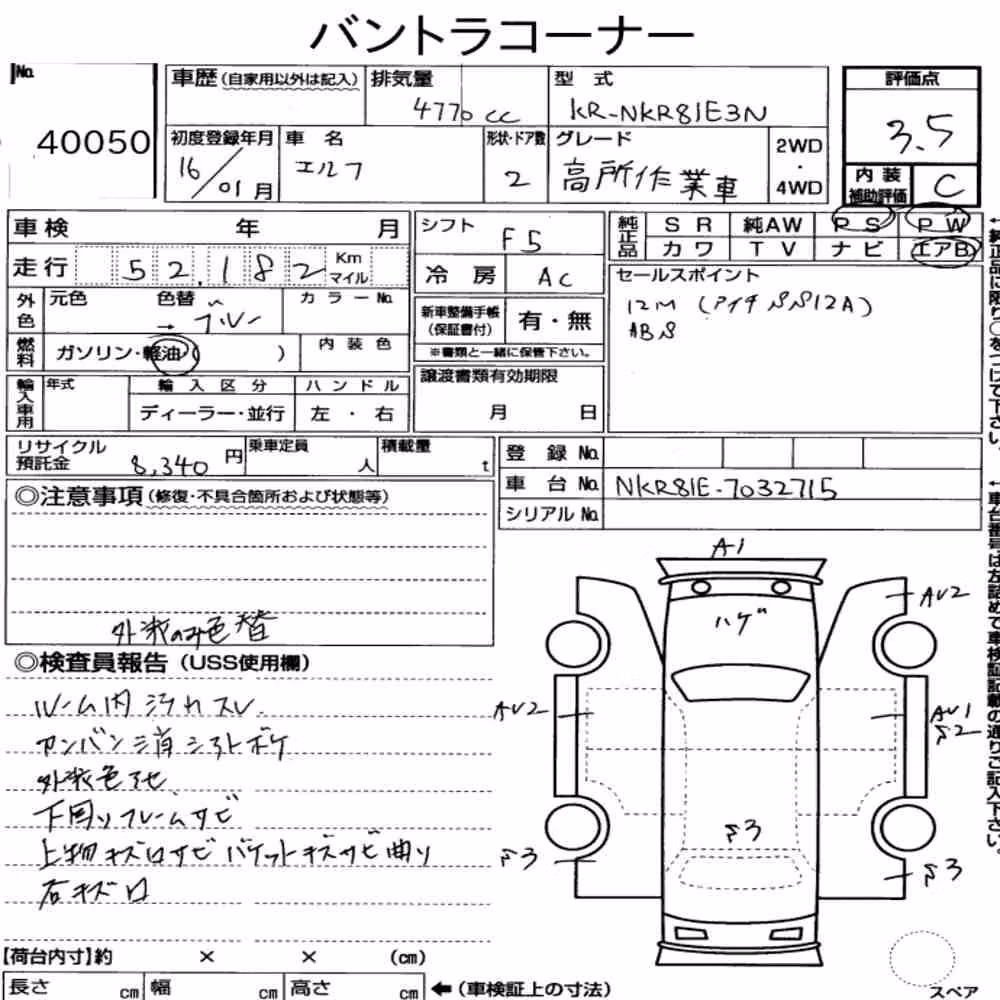 バントラコーナー
No.
40050
車歴(自家用以外は記入)
排気量
4770 cc
型式
KR-NKR81E3N
評価点
3.5
初度登録年月
16/01月
車名
エルフ
形状・ドア数
2
グレード
高所作業車
2WD
・
4WD
内装
補助評価
C
車検 年 月
シフト
F5
純正品
SR 純AW PS PW
カワ TV ナビ エアB
走行 52,182 Km マイル
冷房
AC
セールスポイント
12M (アイチSS12A)
ABS
外色
元色 色替 カラーNo.
→ ブルー
新車整備手帳
(保証書付)
有・無
※書類と一緒に保管下さい。
燃料
ガソリン・軽油( )
内装色
譲渡書類有効期限
月 日
輸入車用
年式
輸入区分
ハンドル
ディーラー・並行
左・右
リサイクル
預託金
8,340円
乗車定員
人
積載量
t
登録No.
車台No. NKR81E-7032715
シリアルNo.
◎注意事項(修復・不具合箇所および状態等)
外装のみ色替
◎検査員報告(USS使用欄)
ルーム内汚れスレ
カンバン消シアトボケ
外装色アセ
下回りフレームサビ
上物キズロサビバケットキズサビ曲り
右キズロ
A1
ハゲ
AU2
AU2
AU1
S2
S3
S3
S3
【荷台内寸】約 × × (cm)
長さ cm 幅 cm 高さ cm
←(車検証上の寸法)
スペア
↑純正品に限り○をつけて下さい。
↑車台番号は左詰めで車検証記載の通りご記入下さい。